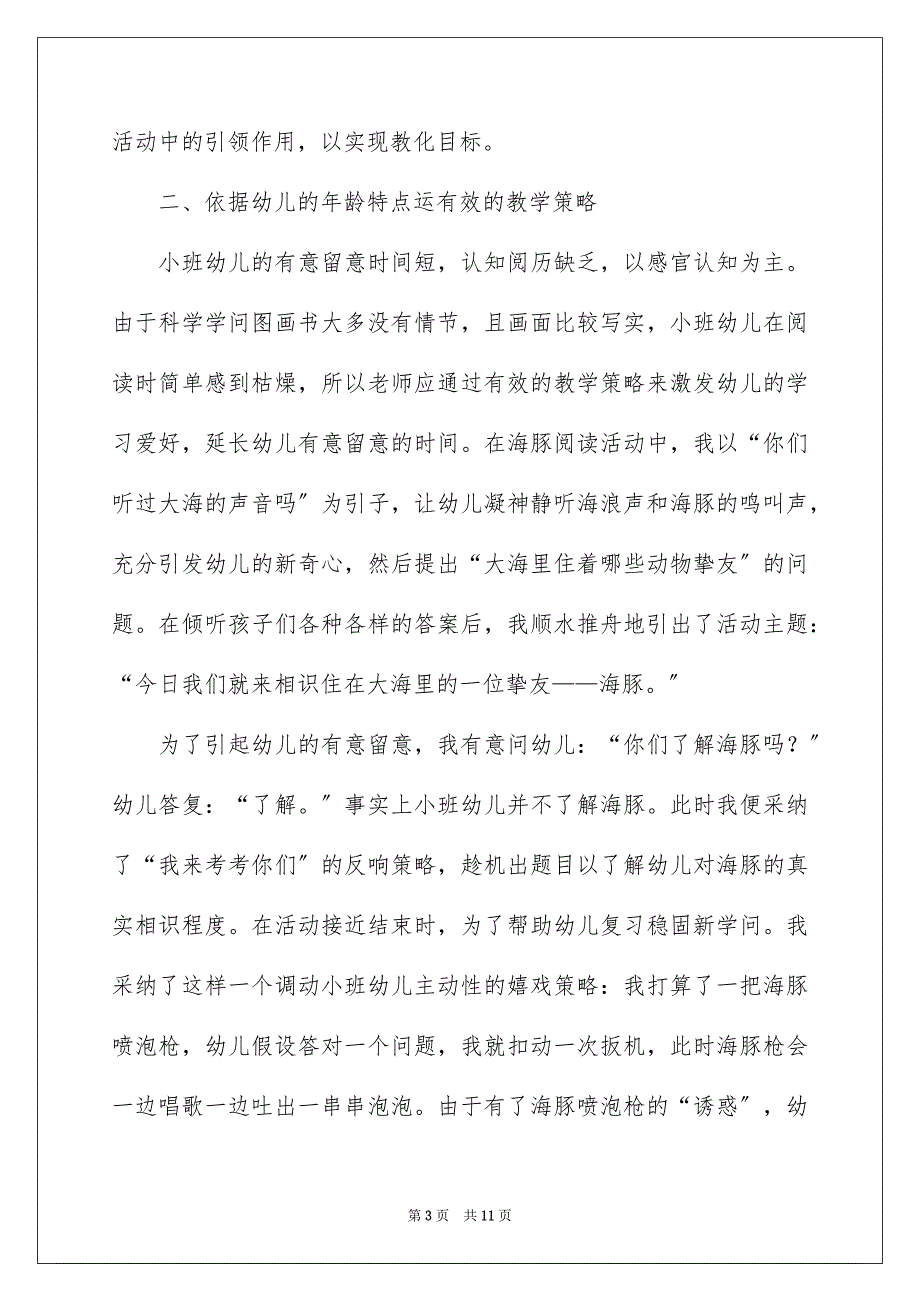 活动中的引领作用，以实现教化目标。
二、依据幼儿的年龄特点运有效的教学策略
小班幼儿的有意留意时间短，认知阅历缺乏，以感官认知为主。
由于科学学问图画书大多没有情节，且画面比较写实，小班幼儿在阅
读时简单感到枯燥，所以老师应通过有效的教学策略来激发幼儿的学
习爱好，延长幼儿有意留意的时间。在海豚阅读活动中，我以“你们
听过大海的声音吗〞为引子，让幼儿凝神静听海浪声和海豚的鸣叫声，
充分引发幼儿的新奇心，然后提出“大海里住着哪些动物挚友〞的问
题。在倾听孩子们各种各样的答案后，我顺水推舟地引出了活动主题：
“今日我们就来相识住在大海里的一位挚友——海豚。〞
为了引起幼儿的有意留意，我有意问幼儿：“你们了解海豚吗？〞
幼儿答复：“了解。〞事实上小班幼儿并不了解海豚。此时我便采纳
了“我来考考你们〞的反响策略，趁机出题目以了解幼儿对海豚的真
实相识程度。在活动接近结束时，为了帮助幼儿复习稳固新学问。我
采纳了这样一个调动小班幼儿主动性的嬉戏策略：我打算了一把海豚
喷泡枪，幼儿假设答对一个问题，我就扣动一次扳机，此时海豚枪会
一边唱歌一边吐出一串串泡泡。由于有了海豚喷泡枪的“诱惑〞，幼
第 3 页 共 11 页